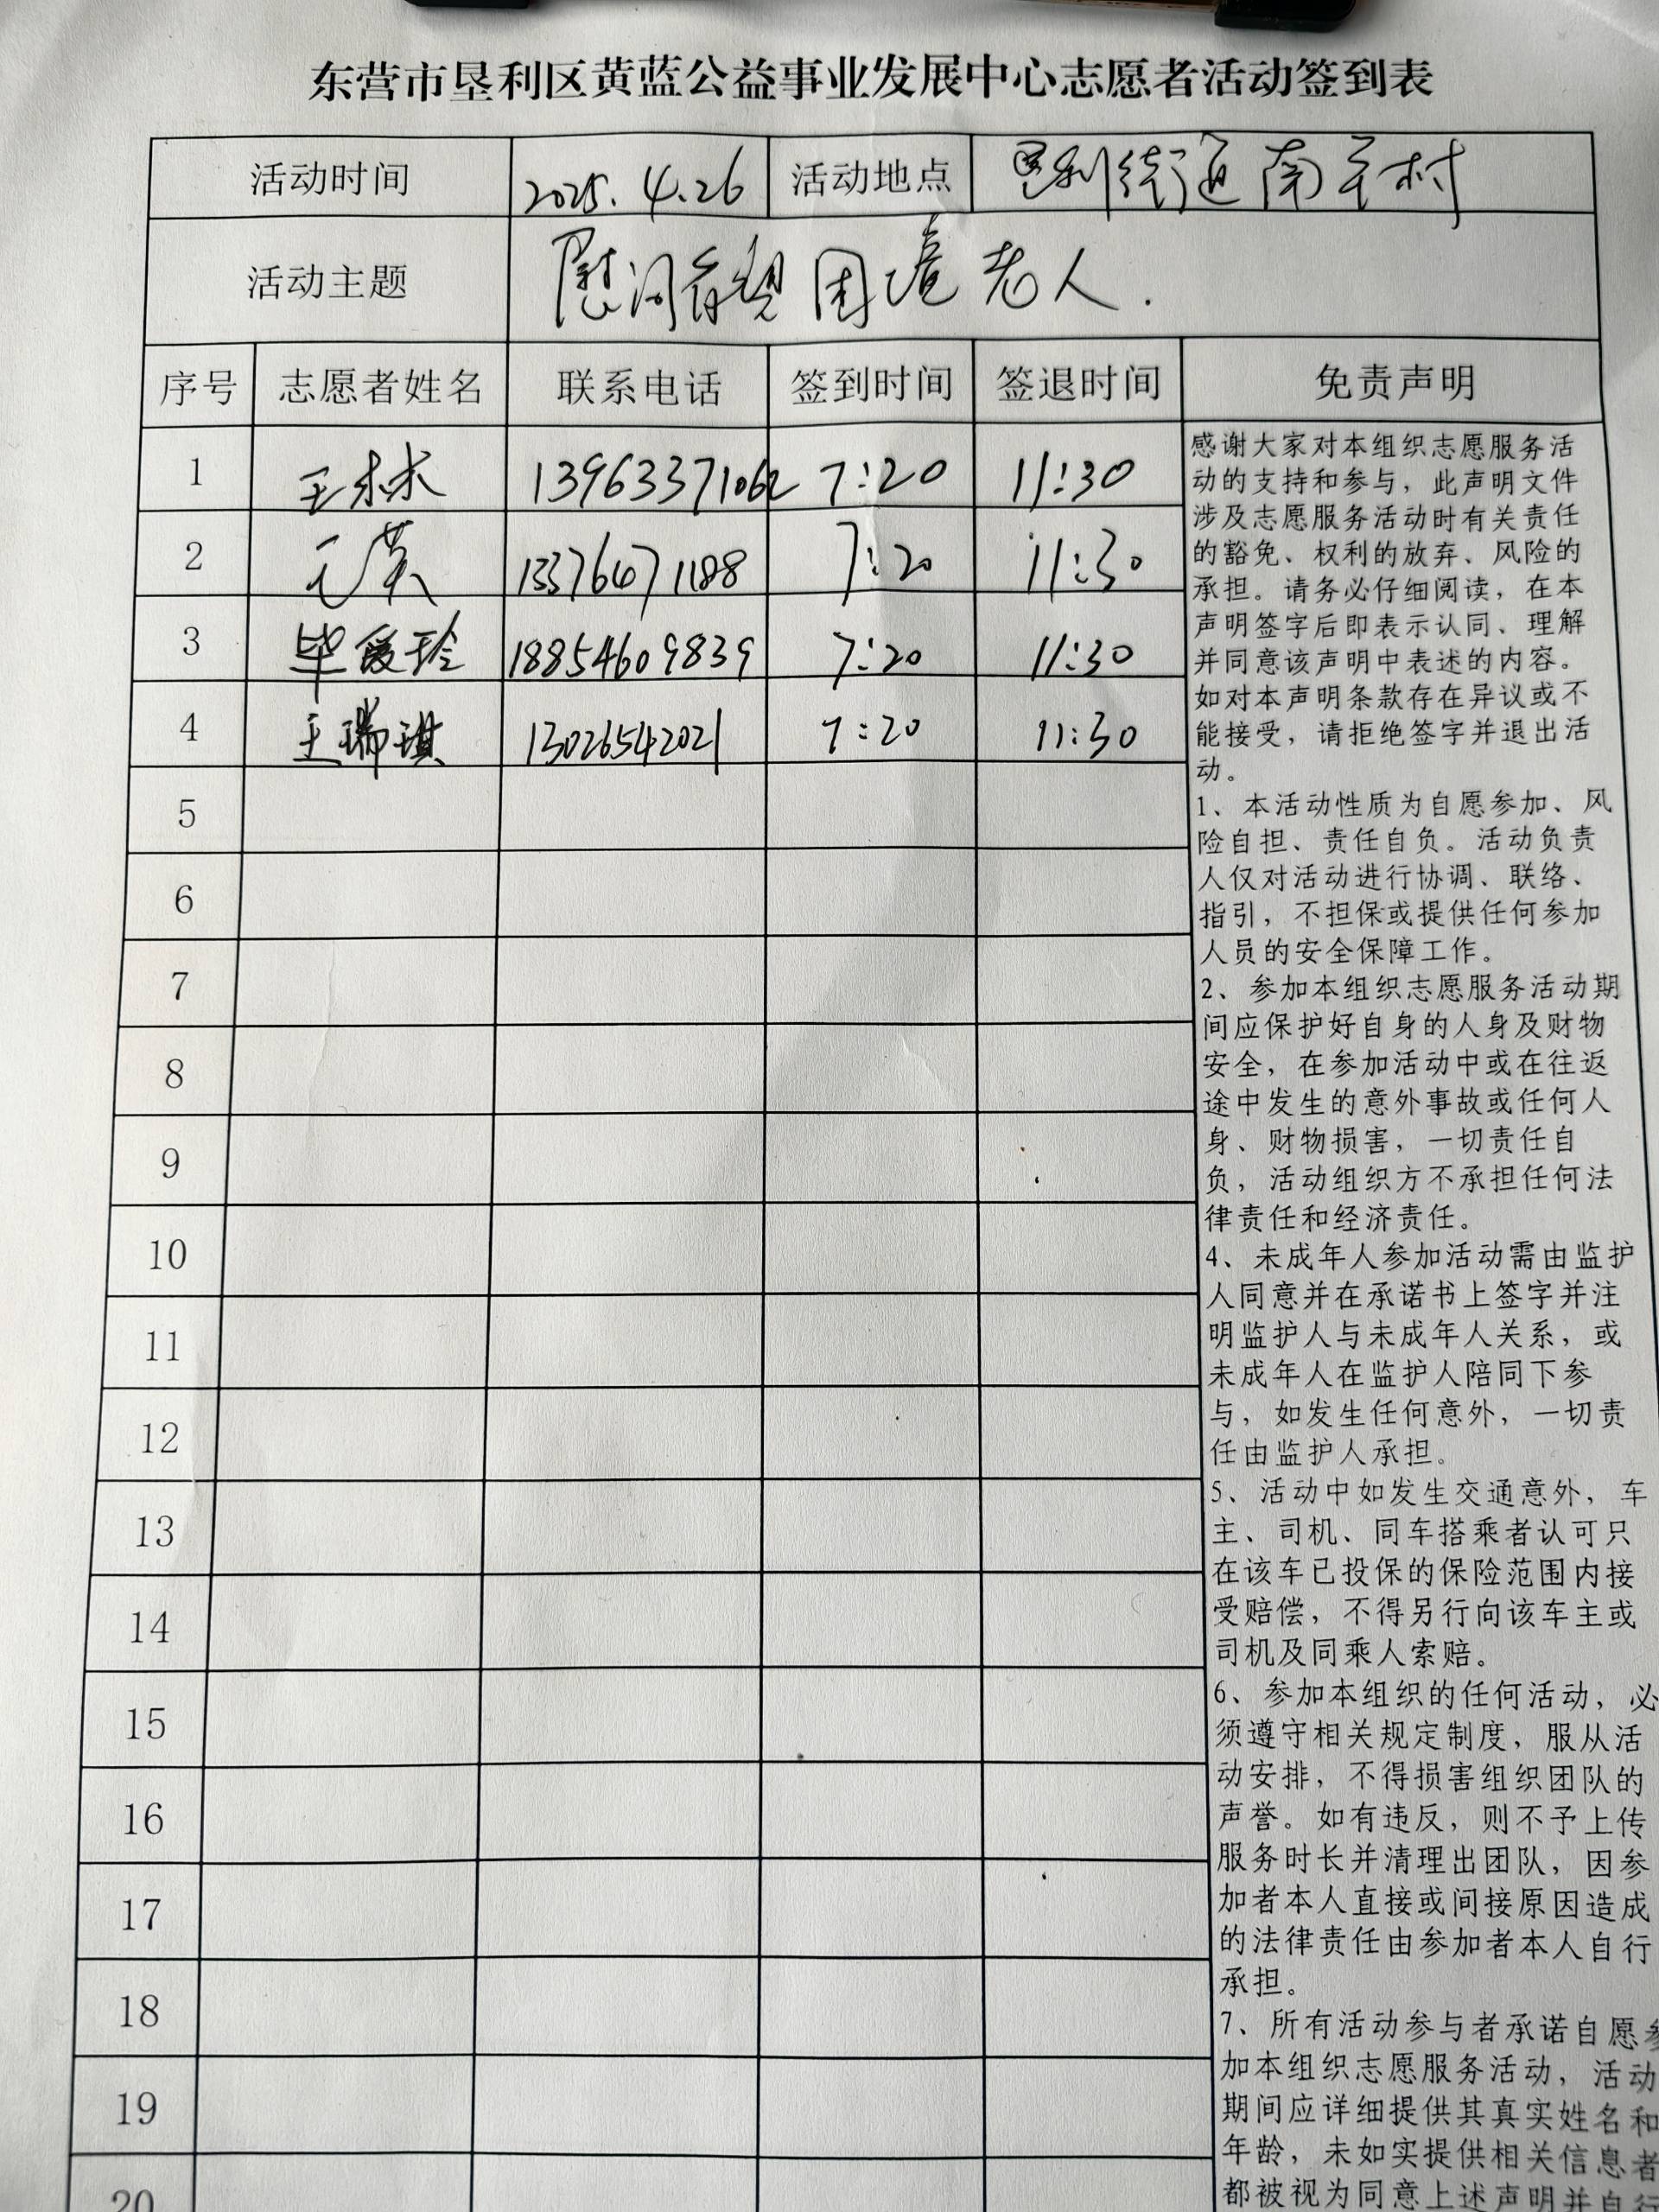 东营市垦利区黄蓝公益事业发展中心志愿者活动签到表
活动时间 2025.4.26 活动地点 垦利街道南王村
活动主题 慰问看望困境老人.
序号 志愿者姓名 联系电话 签到时间 签退时间 免责声明
1 王林林 13963371062 7:20 11:30
2 王英 13376471188 7:20 11:30
3 毕爱玲 18854609839 7:20 11:30
4 王瑞琪 13026542021 7:20 11:30
5
6
7
8
9
10
11
12
13
14
15
16
17
18
19
20
感谢大家对本组织志愿服务活
动的支持和参与，此声明文件
涉及志愿服务活动时有关责任
的豁免、权利的放弃、风险的
承担。请务必仔细阅读，在本
声明签字后即表示认同、理解
并同意该声明中表述的内容。
如对本声明条款存在异议或不
能接受，请拒绝签字并退出活
动。
1、本活动性质为自愿参加、风
险自担、责任自负。活动负责
人仅对活动进行协调、联络、
指引，不担保或提供任何参加
人员的安全保障工作。
2、参加本组织志愿服务活动期
间应保护好自身的人身及财物
安全，在参加活动中或在往返
途中发生的意外事故或任何人
身、财物损害，一切责任自
负，活动组织方不承担任何法
律责任和经济责任。
4、未成年人参加活动需由监护
人同意并在承诺书上签字并注
明监护人与未成年人关系，或
未成年人在监护人陪同下参
与，如发生任何意外，一切责
任由监护人承担。
5、活动中如发生交通意外，车
主、司机、同车搭乘者认可只
在该车已投保的保险范围内接
受赔偿，不得另行向该车主或
司机及同乘人索赔。
6、参加本组织的任何活动，必
须遵守相关规定制度，服从活
动安排，不得损害组织团队的
声誉。如有违反，则不予上传
服务时长并清理出团队，因参
加者本人直接或间接原因造成
的法律责任由参加者本人自行
承担。
7、所有活动参与者承诺自愿参
加本组织志愿服务活动，活动
期间应详细提供其真实姓名和
年龄，未如实提供相关信息者
都被视为同意上述声明并自行